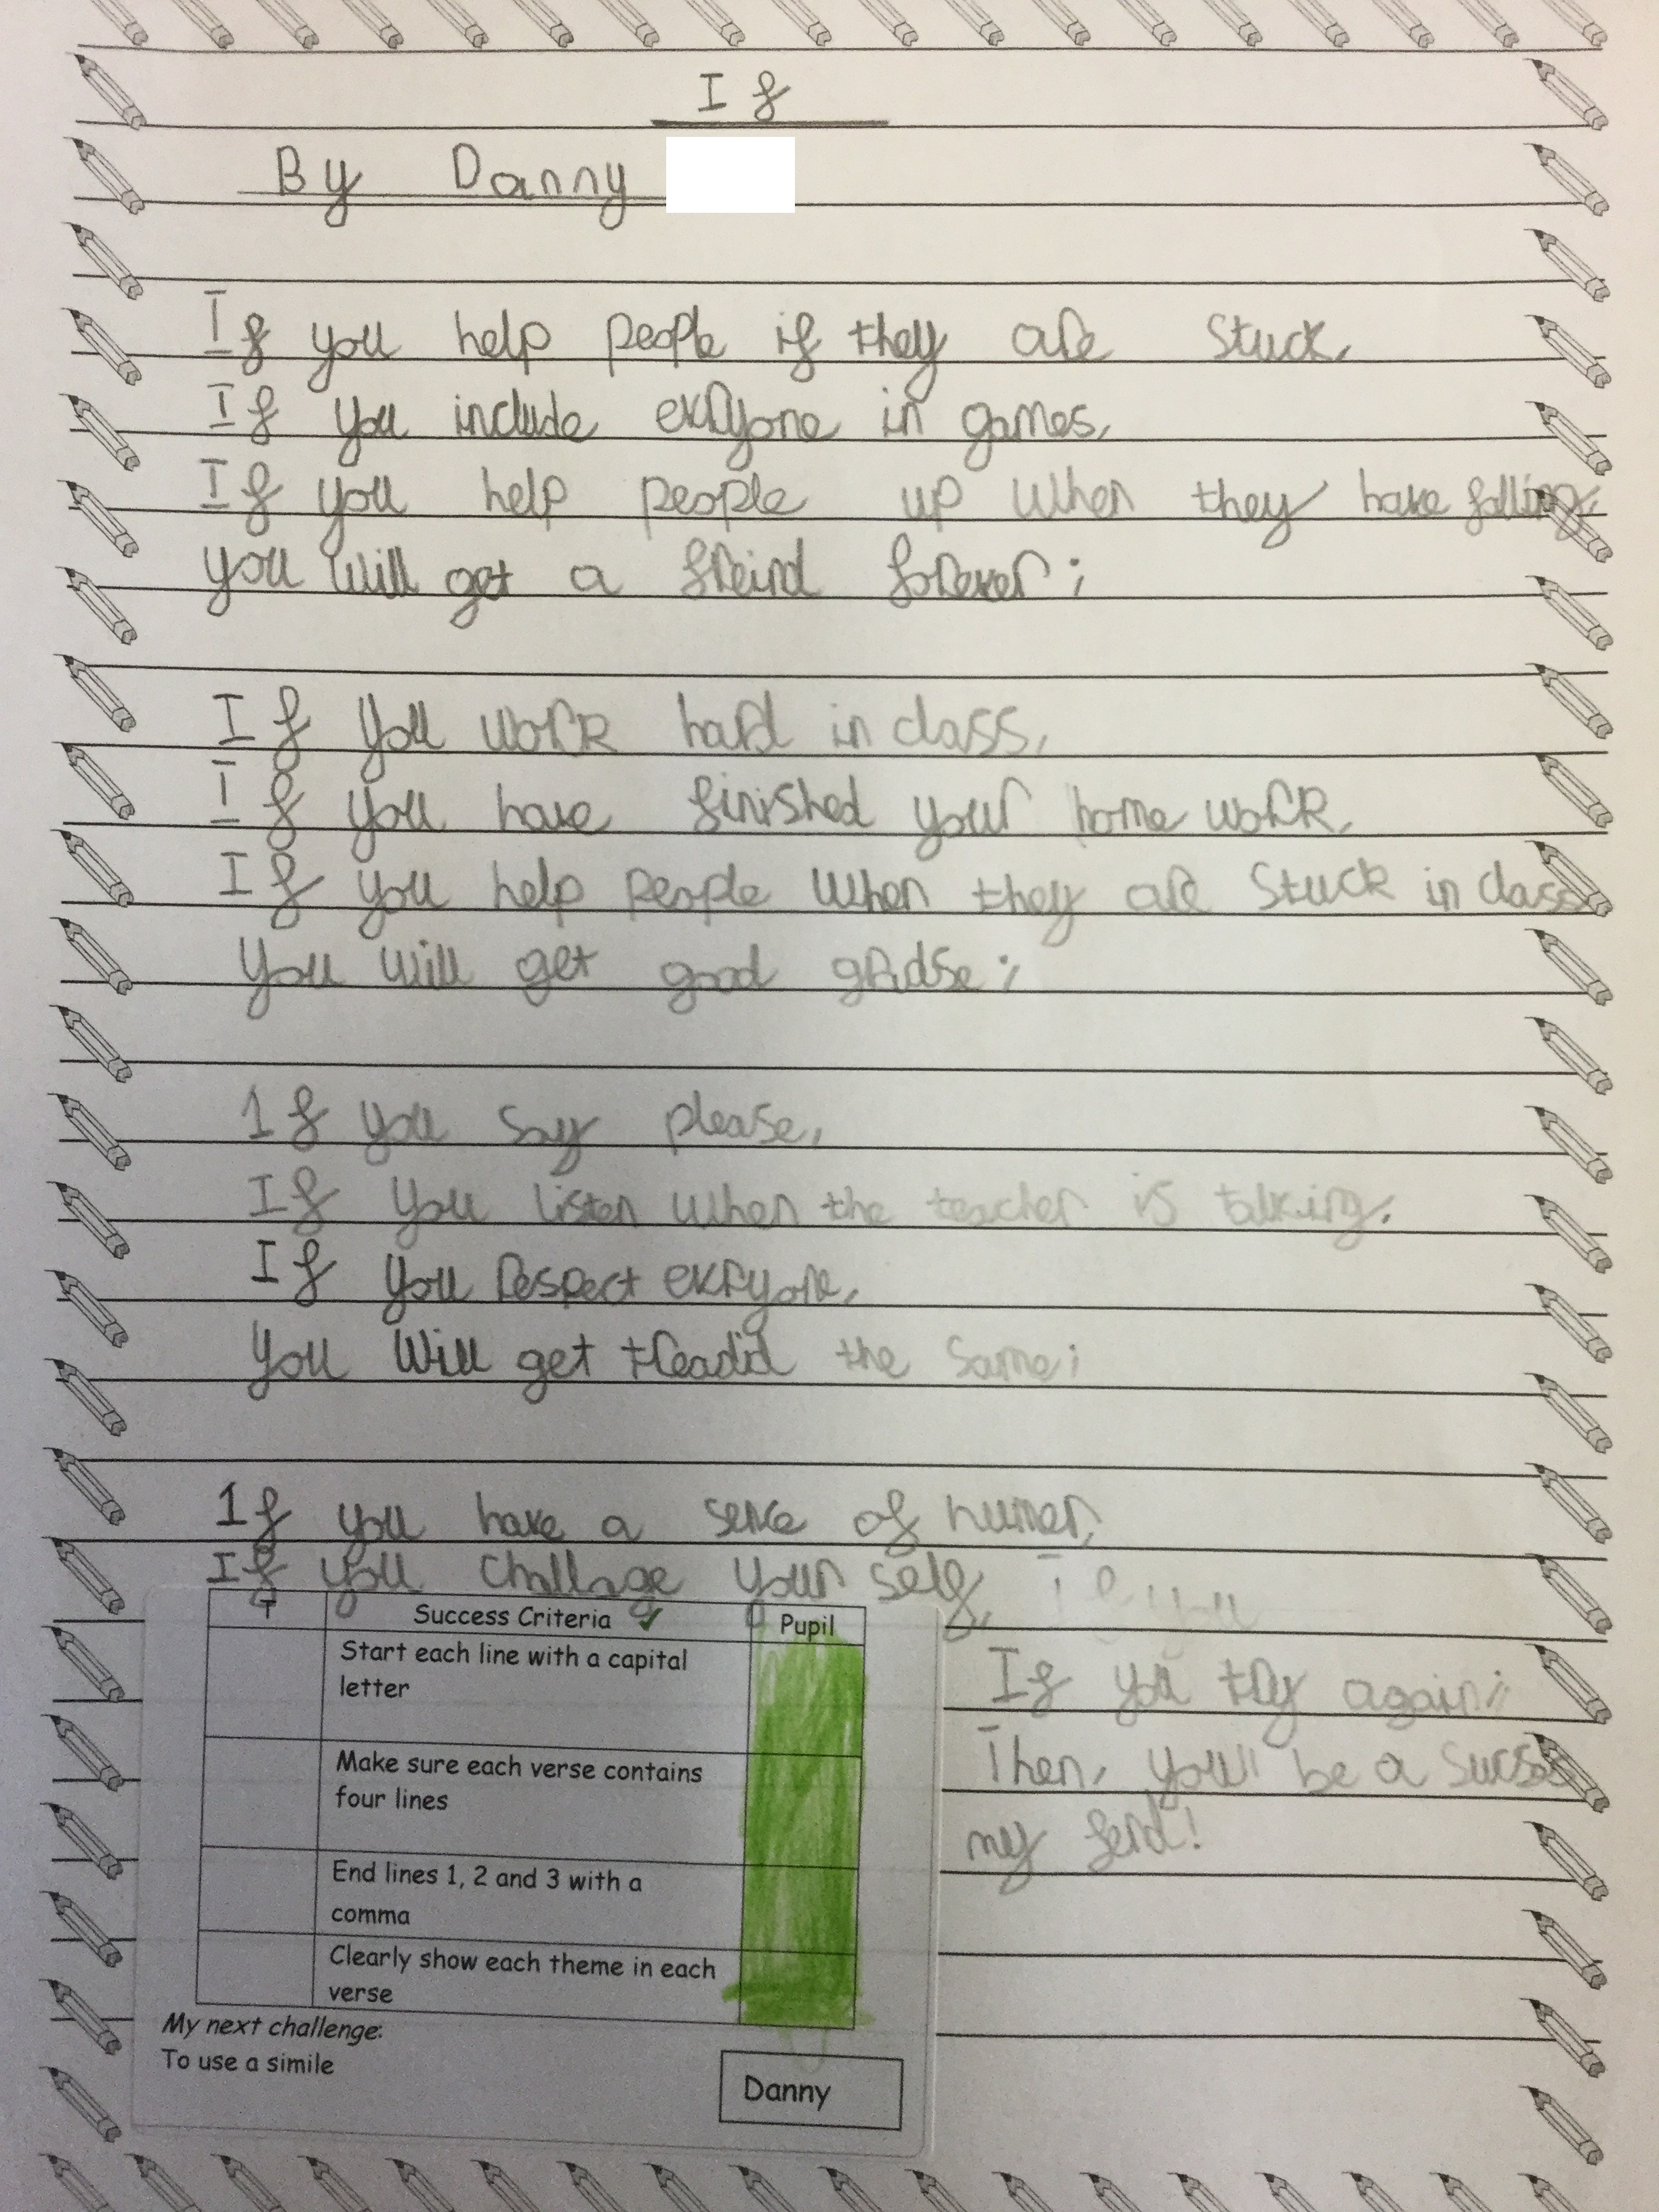 If
By Danny
If you help people if they are stuck,
If you include evryone in games,
If you help people up when they have falling,
you will get a freind forever;
If you work hard in class,
If you have finished your home work,
If you help people when they are stuck in class
you will get good grudse;
If you say please,
If you listen when the teacher is talking,
If you respect evryone,
you will get treadid the same;
If you have a sence of humer,
If you challage your self,
If you
If you try again;
Then, you'll be a sucses
my ferd!
T Success Criteria ✓ Pupil
Start each line with a capital
letter
Make sure each verse contains
four lines
End lines 1, 2 and 3 with a
comma
Clearly show each theme in each
verse
My next challenge:
To use a simile
Danny